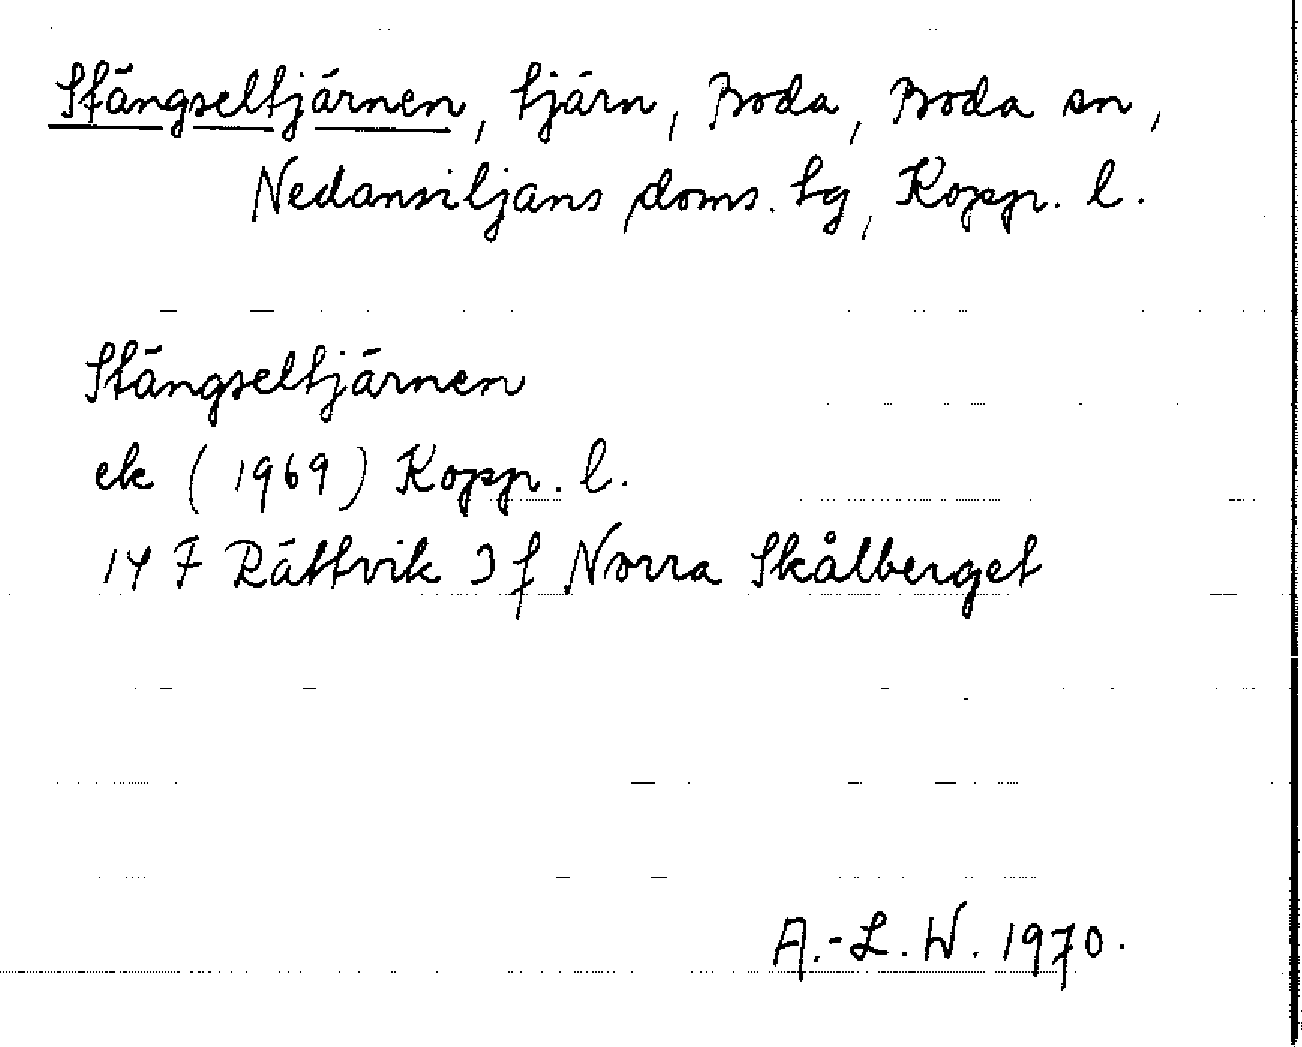 Stängseltjärnen, tjärn, Boda, Boda sn,
Nedansiljans doms. tg, Kopp. l.
Stängseltjärnen
ek (1969) Kopp. l.
14 F Rättvik 3 f Norra Skålberget
A.-L. W. 1970.